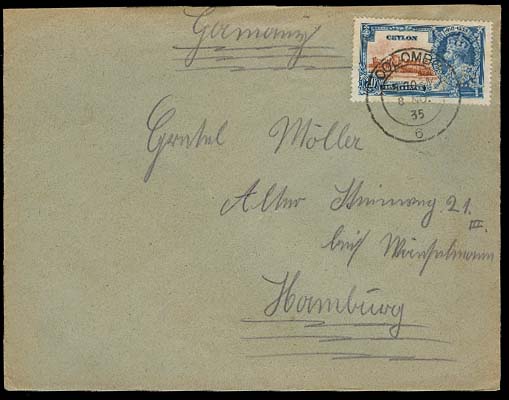 Germany
CEYLON
COLOMBO
35
6
Gretel Möller
Alter Steinweg 21.
III.
bei
Hamburg